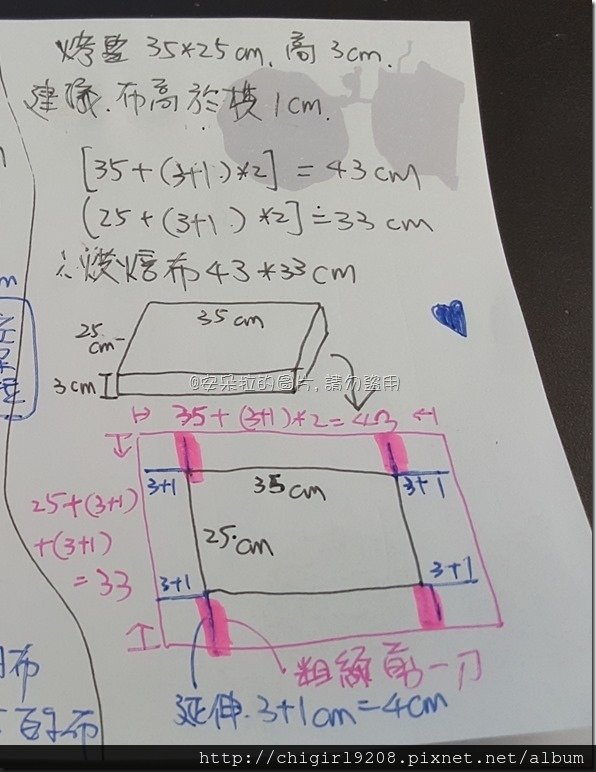 烤盤 35*25cm, 高 3cm.
建議. 布高於模 1cm.
[35+(3+1)*2] = 43cm
(25+(3+1)*2] ≐ 33cm
∴烘焙布 43*33cm
35cm
25cm
3cm
@安朵拉的圖片, 請勿盜用
35+(3+1)*2=43
3+1
3+1
35cm
25cm
25+(3+1)
+(3+1)
=33
3+1
3+1
粗線剪一刀
延伸.3+1cm=4cm
布
布
http://chigirl9208.pixnet.net/album